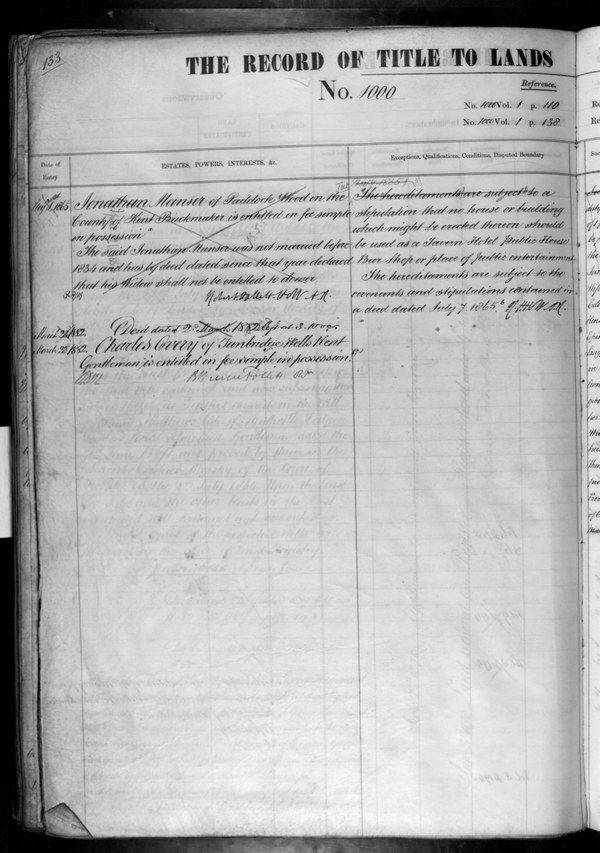 133
THE RECORD OF TITLE TO LANDS
No. 1000
Reference.
No. 1000 Vol. 1 p. 110
No. 1000 Vol. 1 p. 138
Date of
Entry
ESTATES, POWERS, INTERESTS, &c.
Exceptions, Qualifications, Conditions, Disputed Boundary
1865 Jonathan Manser of Paddock Wood in the
County of Kent Brickmaker is entitled in fee simple
in possession
The said Jonathan Manser was not married before
1834 and has by deed dated since that year declared
that his Widow shall not be entitled to dower
The hereditaments are subject to a
stipulation that no house or building
which might be erected thereon should
be used as a Tavern Hotel Public House
Beer Shop or place of public entertainment
The hereditaments are subject to the
covenants and stipulations contained in
a deed dated July 7. 1865.
March 1882. Deed dated March 1882 left at 3.
March 22 1882. Charles Every of Tunbridge Wells Kent
Gentleman is entitled in fee simple in possession